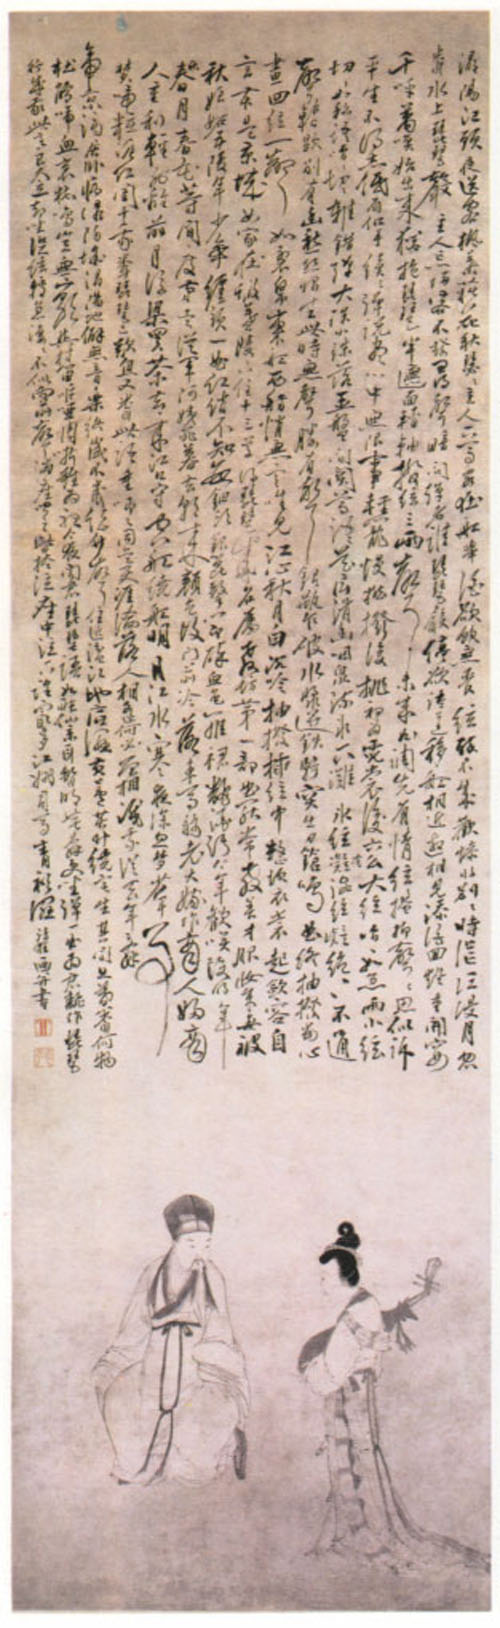 潯陽江頭夜送客楓葉荻花秋瑟瑟主人下馬客在船舉酒欲飲無管絃醉不成歡慘將別別時茫茫江浸月忽
聞水上琵琶聲主人忘歸客不發尋聲暗問彈者誰琵琶聲停欲語遲移船相近邀相見添酒回燈重開宴
千呼萬喚始出來猶抱琵琶半遮面轉軸撥絃三兩聲未成曲調先有情絃絃掩抑聲聲思似訴
平生不得志低眉信手續續彈說盡心中無限事輕籠慢撚撥復挑初為霓裳後六幺大絃嘈嘈如急雨小絃
切切如私語嘈嘈切切雜錯彈大珠小珠落玉盤間關鶯語花底滑幽咽泉流水下灘水絃凝絕凝絕不通
聲暫歇別有幽愁暗恨生此時無聲勝有聲銀瓶乍破水漿迸鐵騎突出刀鎗鳴曲終抽撥當心
畫四絃一聲如裂帛東船西舫悄無言唯見江心秋月白沉吟抽撥插絃中整頓衣裳起斂容自
言本是京城女家在蝦蟆陵下住十三學得琵琶成名屬教坊第一部曲罷常教善才服妝成每被
秋娘妬五陵年少爭纏頭一曲紅綃不知數鈿頭銀篦擊節碎血色羅裙翻酒污今年歡笑復明年
秋月春風等閒度弟走從軍阿姨死暮去朝來顏色故門前冷落車馬稀老大嫁作商人婦商
人重利輕別離前月浮梁買茶去去來江口守空船繞船明月江水寒夜深忽夢少年事
夢啼妝淚紅闌干我聞琵琶已歎息又聞此語重唧唧同是天涯淪落人相逢何必曾相識我從去年辭
帝京謫居臥病潯陽城潯陽地僻無音樂終歲不聞絲竹聲住近湓江地底濕黃蘆苦竹繞宅生其間旦暮聞何物
杜鵑啼血猿哀鳴豈無山歌與村笛嘔啞嘲哳難為聽今夜聞君琵琶語如聽仙樂耳暫明莫辭更坐彈一曲為君翻作琵琶
行感我此言良久立却坐促絃絃轉急淒淒不似向前聲滿座聞之皆掩泣座中泣下誰最多江州司馬青衫濕